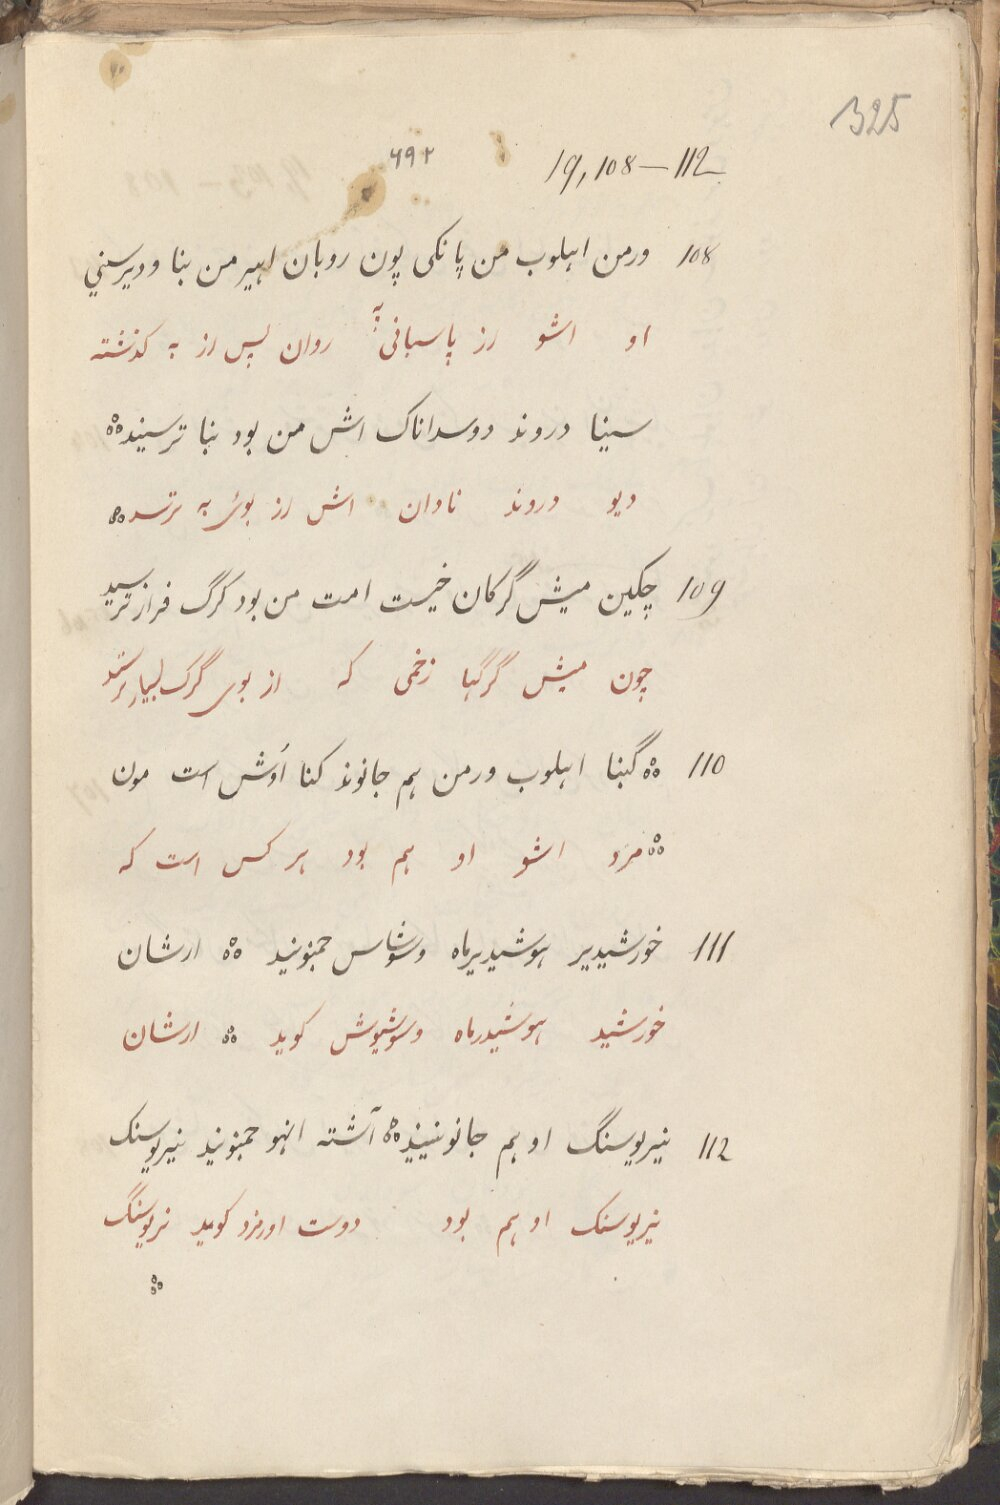 325
۶۹۲ 19,108–112
108 ورمن اهلوب من پانکی پون روبان اهیر من بنا ودیرسنی
او اشو رز پاسبانی به روان پس رز به کذشته
سینا دروند دوسداناک اش من بود بنا ترسیند
دیو دروند نادان اش رز بوی به ترسد
109 چکین میش گرکان خیست امت من بود کرگ فراز ترسید
چون میش گرگها زخمی که از بوی گرگ بسیار
110 گبنا اهلوب ورمن هم جانوند کنا اوش است مون
مرد اشو او هم بود هر کس است که
111 خورشیدیر هوشیدیرماه وسوشاس جمنوند ارشان
خورشید هوشیدرماه وسوشیوش کوید ارشان
112 نیریوسنگ او هم جانونیند آشته انهو جمنوند نیریوسنک
نیریوسنک او هم بود دوست اورمزد کوید نریوسنگ